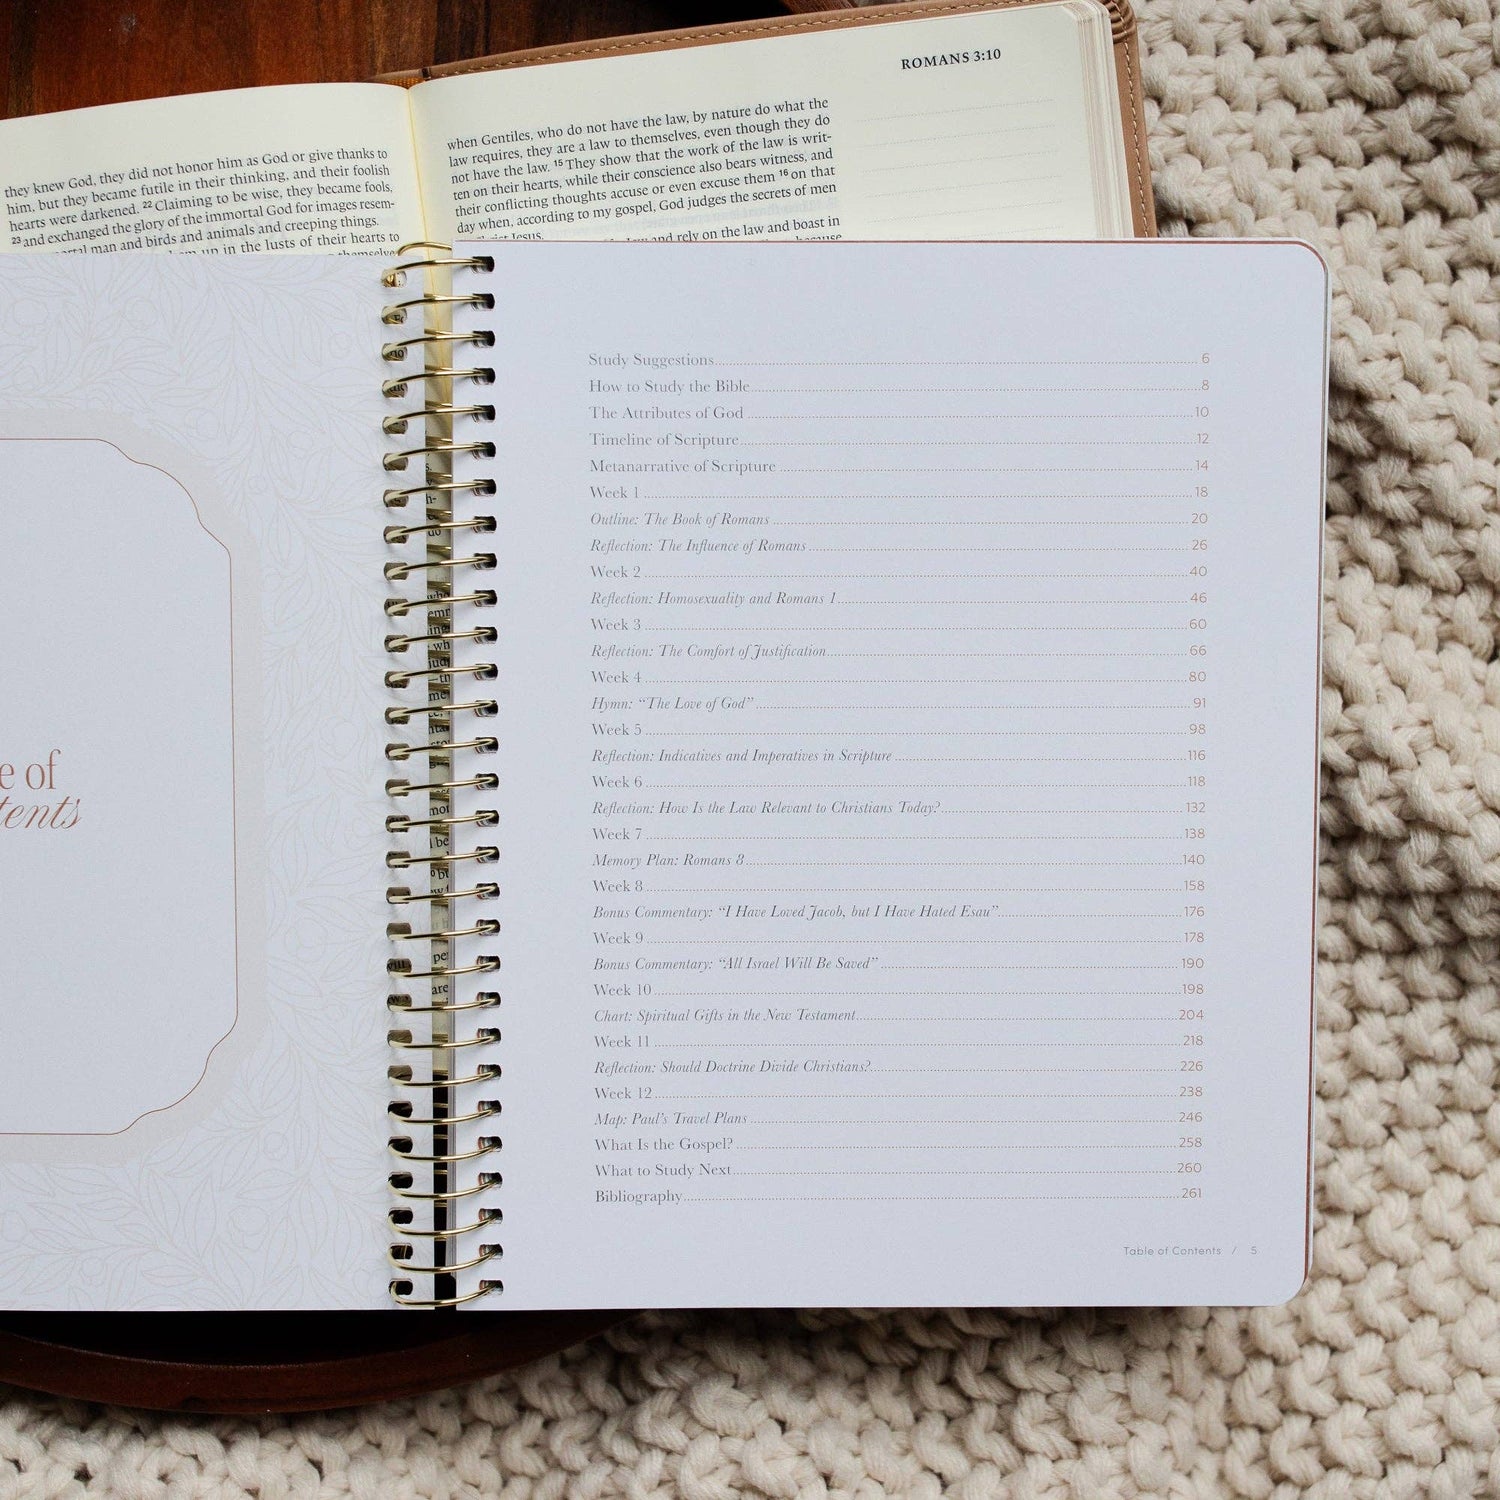 ROMANS 3:10
they knew God, they did not honor him as God or give thanks to
him, but they became futile in their thinking, and their foolish
hearts were darkened. 22 Claiming to be wise, they became fools,
23 and exchanged the glory of the immortal God for images resem-
man and birds and animals and creeping things.
up in the lusts of their hearts to
when Gentiles, who do not have the law, by nature do what the
law requires, they are a law to themselves, even though they do
not have the law. 15 They show that the work of the law is writ-
ten on their hearts, while their conscience also bears witness, and
their conflicting thoughts accuse or even excuse them 16 on that
day when, according to my gospel, God judges the secrets of men
Jesus.
and rely on the law and boast in
because
e of
tents
Study Suggestions 6
How to Study the Bible 8
The Attributes of God 10
Timeline of Scripture 12
Metanarrative of Scripture 14
Week 1 18
Outline: The Book of Romans 20
Reflection: The Influence of Romans 26
Week 2 40
Reflection: Homosexuality and Romans 1 46
Week 3 60
Reflection: The Comfort of Justification 66
Week 4 80
Hymn: “The Love of God” 91
Week 5 98
Reflection: Indicatives and Imperatives in Scripture 116
Week 6 118
Reflection: How Is the Law Relevant to Christians Today? 132
Week 7 138
Memory Plan: Romans 8 140
Week 8 158
Bonus Commentary: “I Have Loved Jacob, but I Have Hated Esau” 176
Week 9 178
Bonus Commentary: “All Israel Will Be Saved” 190
Week 10 198
Chart: Spiritual Gifts in the New Testament 204
Week 11 218
Reflection: Should Doctrine Divide Christians? 226
Week 12 238
Map: Paul's Travel Plans 246
What Is the Gospel? 258
What to Study Next 260
Bibliography 261
Table of Contents / 5